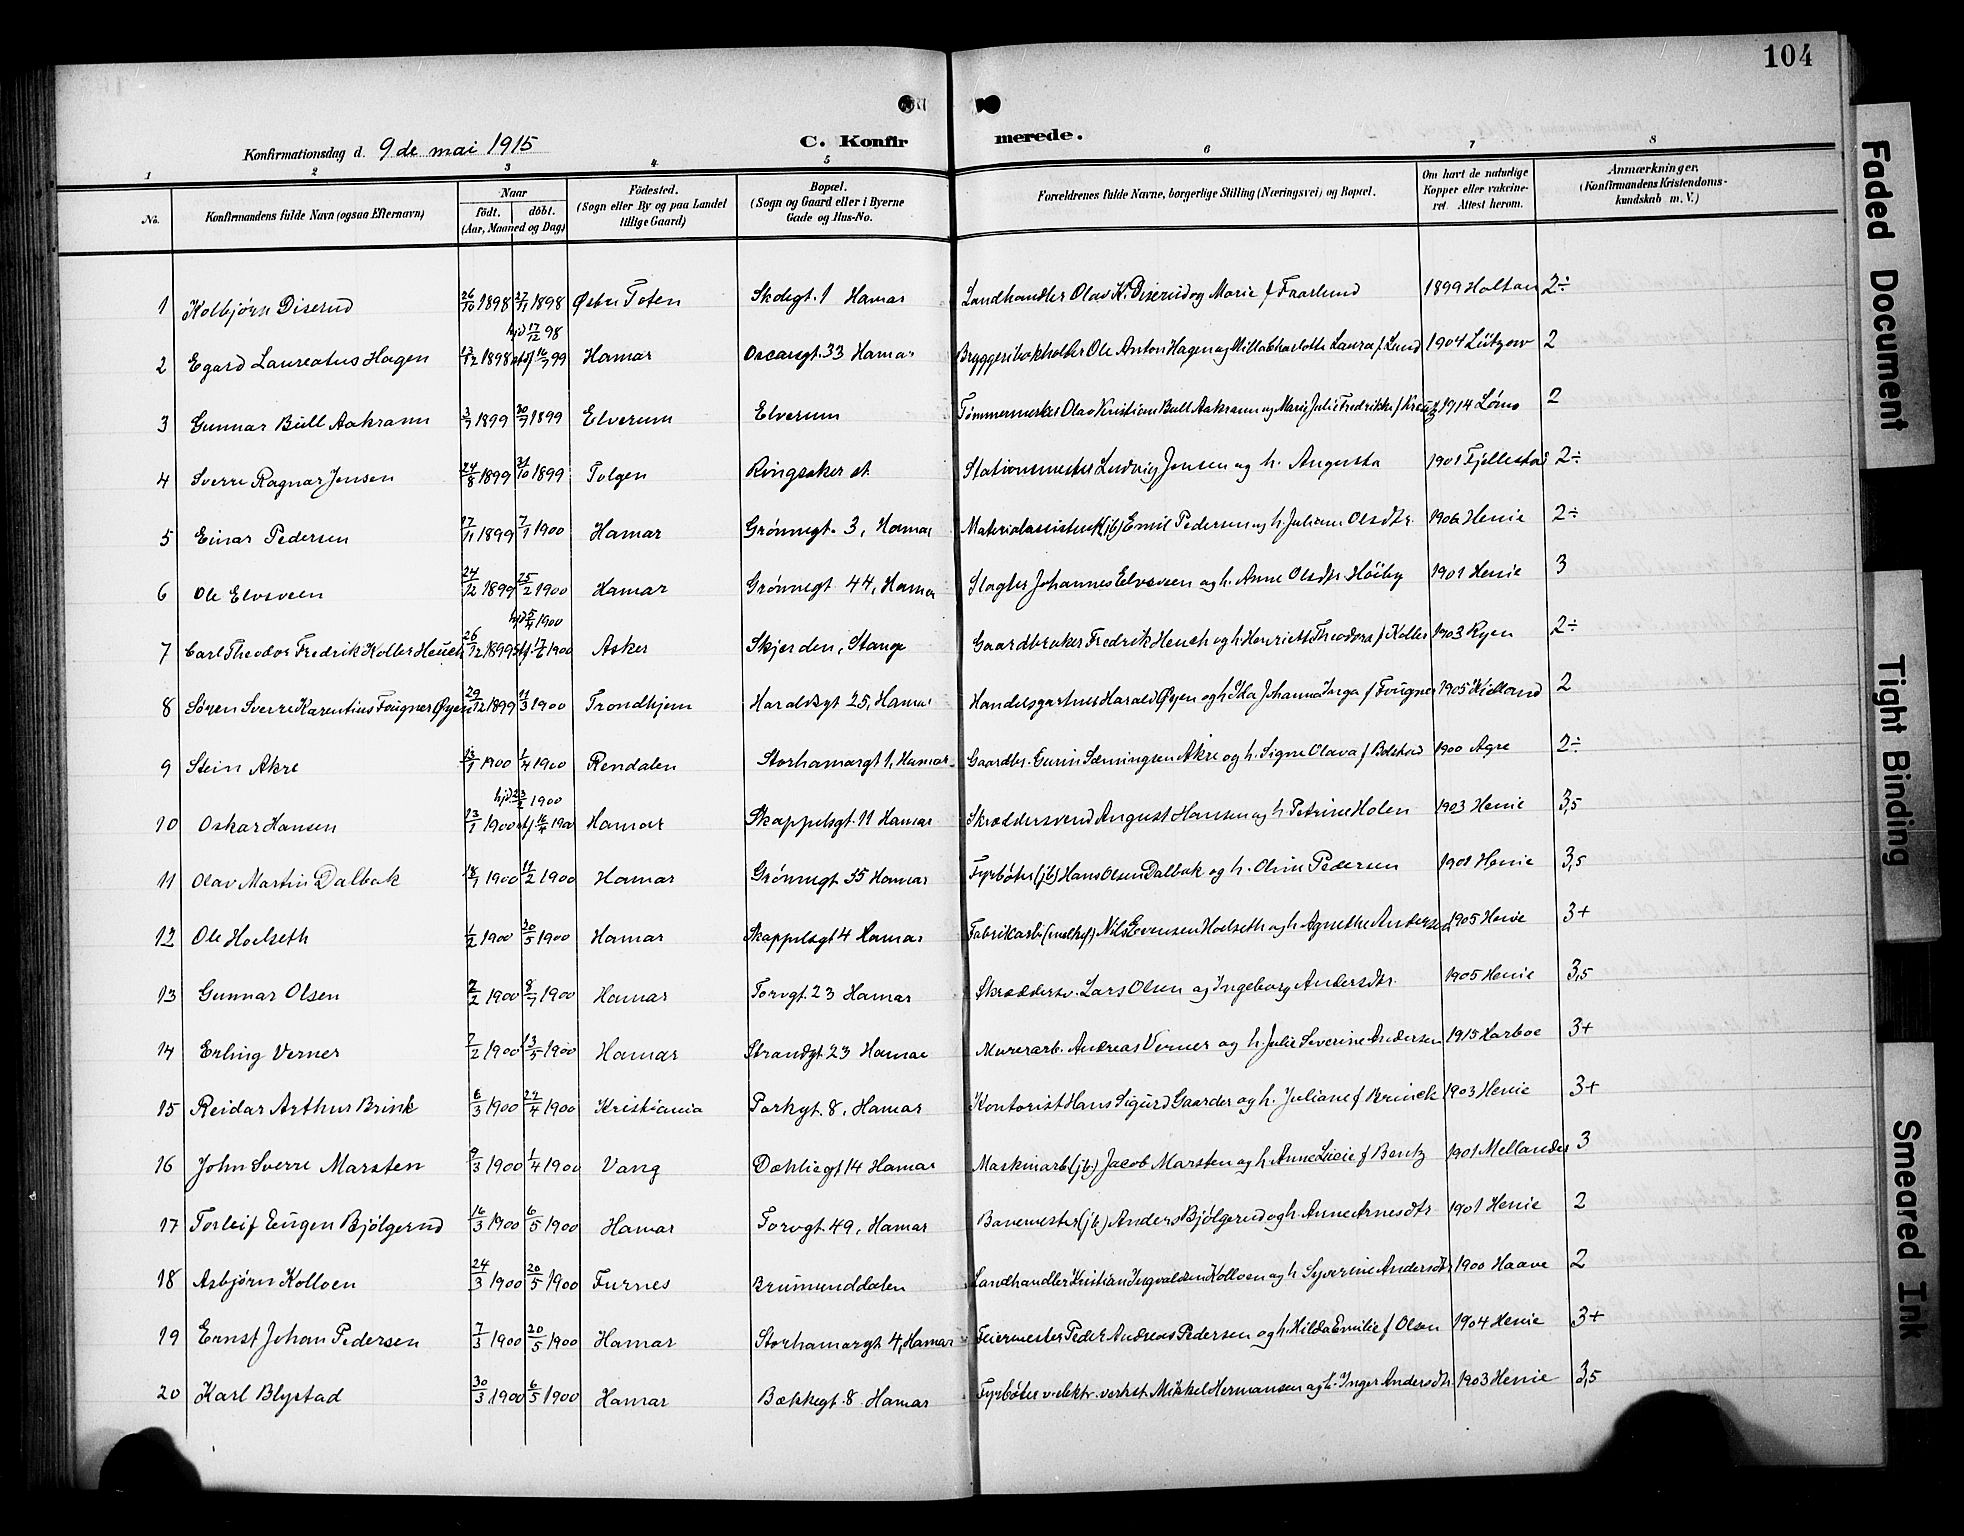 104
Konfirmationsdag d. 9 de mai 1915
C. Konfirmerede.
1 2 3 4 5 6 7 8
No.
Konfirmandens fulde Navn (ogsaa Efternavn)
Naar
födt. döbt.
(Aar, Maaned og Dag)
Födested.
(Sogn eller By og paa Landet
tillige Gaard)
Bopæl.
(Sogn og Gaard eller i Byerne
Gade og Hus-No.
Forældrenes fulde Navne, borgerlige Stilling (Næringsvei) og Bopæl.
Om havt de naturlige
Kopper eller vakcine-
ret. Attest herom.
Anmærkninger,
(Konfirmandens Kristendoms-
kundskab m. V.)
1 Kolbjörn Diserud 26/10 1898 27/11 1898 Østre Toten Skolegt. 1 Hamar Landhandler Olav K. Diserud og Marie f Faarlund 1899 Holtan 2÷
hjd 17/12 98
2 Egard Laureatus Hagen 13/12 1898 stf 16/7 99 Hamar Oscarsgt. 33 Hamar Bryggeribokholder Ole Anton Hagen og Milla Charlotte Laura f Lund 1904 Lützow 2
3 Gunnar Bull Aakrann 3/7 1899 30/7 1899 Elverum Elverum Tømmermerker Olav Kristian Bull Aakrann og Marie Julie Fredrikke f Kreutz 1914 Lömo 2
4 Sverre Ragnar Jensen 24/8 1899 31/10 1899 Tolgen Ringsaker st. Stationsmester Ludvig Jensen og h. Augusta 1901 Fjellestad 2÷
5 Einar Pedersen 17/11 1899 7/1 1900 Hamar Grönnegt. 3, Hamar Materialassistent (jb) Emil Pedersen og h. Juliane Olsdtr. 1906 Henie 2÷
6 Ole Elvsveen 24/12 1899 25/2 1900 Hamar Grönnegt 44, Hamar Slagter Johannes Elvsveen og h. Anne Olsdtr. Höiby 1901 Henie 3
hjd 5/4 1900
7 Carl Theodor Fredrik Koller Heuch 26/12 1899 stf 17/6 1900 Asker Skjerden, Stange Gaardbruker Fredrik Heuch og h Henriette Theodora f Koller 1903 Ryen 2÷
8 Sören Sverre Karentius Fougner Öyen 29/12 1899 11/3 1900 Trondhjem Haraldsgt 25, Hamar Handelsgartner Harald Øyen og h Ida Johanna Inga f Fougner 1905 Kielland 2
9 Stein Akre 13/1 1900 1/4 1900 Rendalen Storhamargt 1, Hamar Gaardbr. Gunin Sæmingsen Akre og h. Signe Olava f Bolstad 1900 Agre 2÷
hjd 23/2 1900
10 Oskar Hansen 13/1 1900 stf 16/4 1900 Hamar Skappelsgt. 11 Hamar Skræddersvend August Hansen og h Petrine Holen 1903 Henie 3,5
11 Olav Martin Dalbak 18/1 1900 11/2 1900 Hamar Grönnegt 35 Hamar Fyrbøter (jb) Hans Olsen Dalbak og h. Oline Pedersen 1901 Henie 3,5
12 Ole Hoelseth 1/2 1900 20/5 1900 Hamar Skappelsgt 4 Hamar Fabrikarb (melkef) Nils Evensen Hoelseth og h Agnethe Andersen 1905 Henie 3+
13 Gunnar Olsen 2/2 1900 8/7 1900 Hamar Torvgt. 23 Hamar Skræddersv. Lars Olsen og Ingeborg Andersdtr. 1905 Henie 3,5
14 Erling Verner 7/2 1900 13/5 1900 Hamar Strandgt. 23 Hamar Murerarb. Andreas Verner og h. Julie Severine Andersen 1915 Harboe 3+
15 Reidar Arthur Brink 6/3 1900 22/4 1900 Kristiania Parkgt. 8, Hamar Kontorist Hans Sigurd Gaarder og h. Juliane f Brinck 1903 Henie 3+
16 John Sverre Marsten 9/3 1900 1/4 1900 Vang Dæhliegt 14 Hamar Maskinarb (jb) Jacob Marsten og h Anne Lucie f Bentz 1901 Mellander 3
17 Torleif Eugen Bjölgerud 16/3 1900 6/5 1900 Hamar Torvgt. 49, Hamar Banemester (jb) Anders Bjölgerud og h. Anne Arnesdtr 1901 Henie 2
18 Asbjörn Kolloen 24/3 1900 20/5 1900 Furnes Brumunddalen Landhandler Kristian Ingvaldsen Kolloen og h Syverine Andersdtr 1900 Haave 2
19 Ernst Johan Pedersen 7/3 1900 20/5 1900 Hamar Storhamargt 4, Hamar Feiermester Peder Andreas Pedersen og h. Hilda Emilie f Olsen 1904 Henie 3+
20 Karl Blystad 30/3 1900 6/5 1900 Hamar Bækkegt. 8 Hamar Fyrbøter v. elektr. verkst. Mikkel Hermansen og h. Inger Andersdtr 1903 Henie 3,5
Faded Document
Tight Binding
Smeared Ink